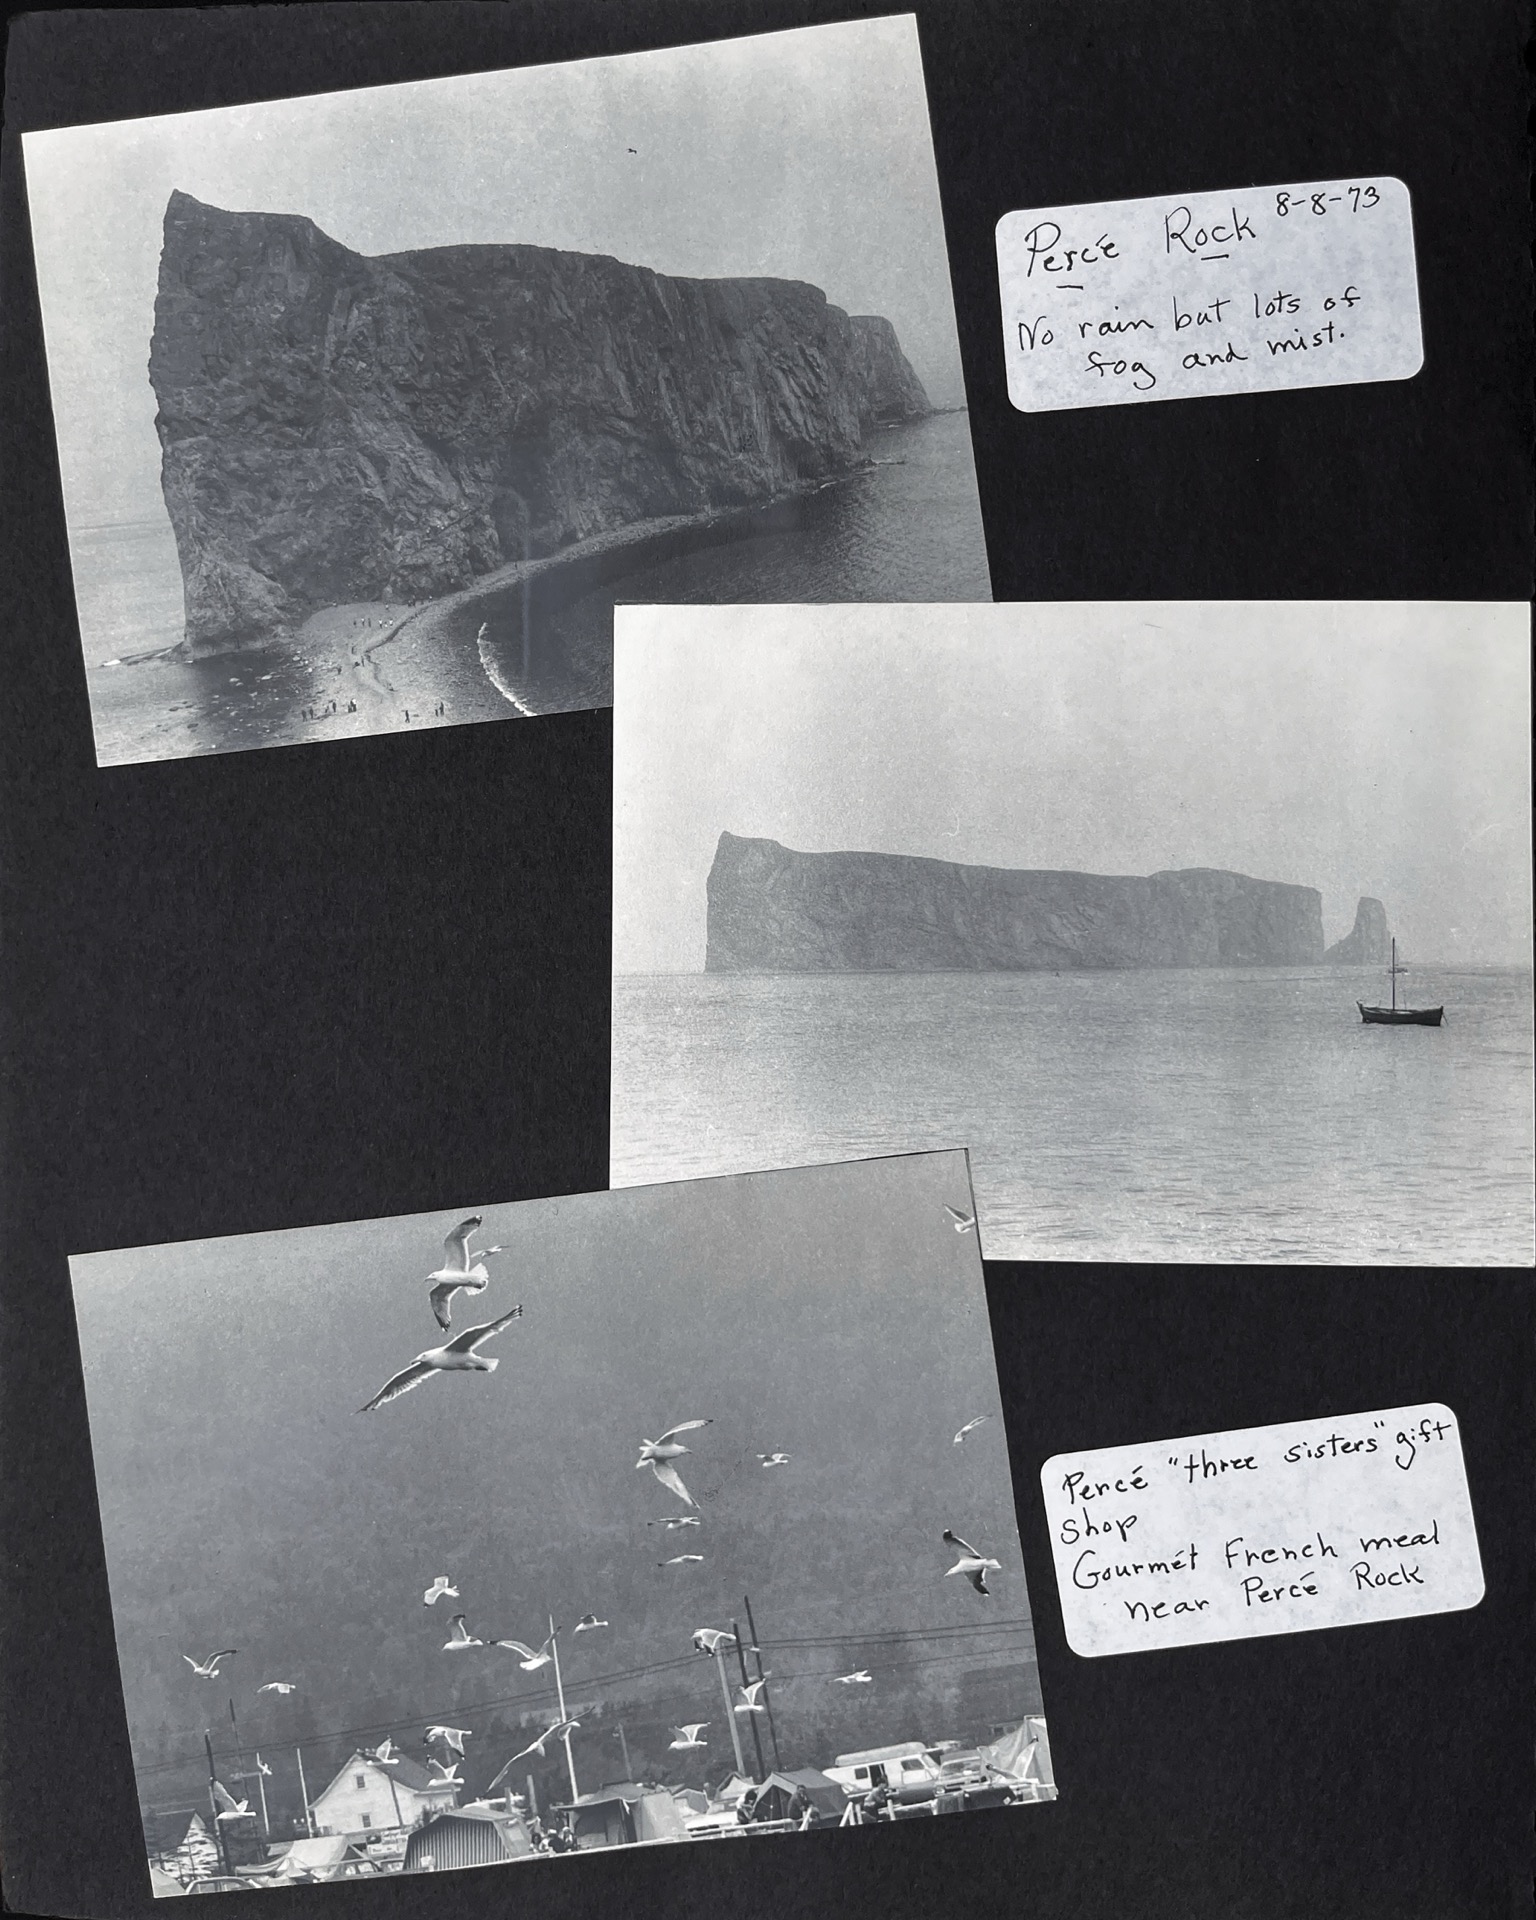 Percé Rock 8-8-73
No rain but lots of
fog and mist.
Percé "three sisters" gift
shop
Gourmét French meal
near Percé Rock